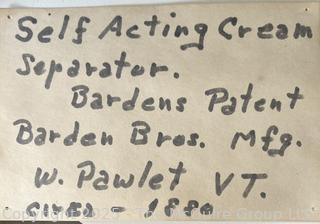 Self Acting Cream
Separator.
Bardens Patent
Barden Bros. Mfg.
W. Pawlet VT.
circa - 1880